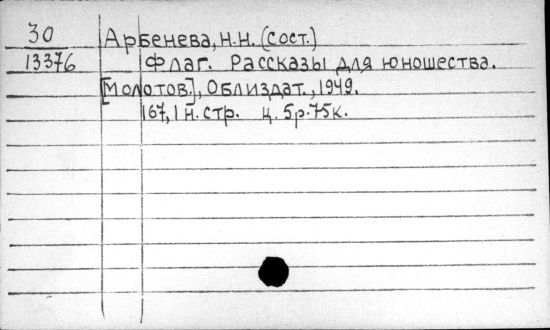 30 Арбенева, Н.Н. (сост.)
13376 Флаг. Рассказы для юношества.
[Молотов.], Облиздат., 1949.
167, 1 н. стр. ц. 5р.75к.